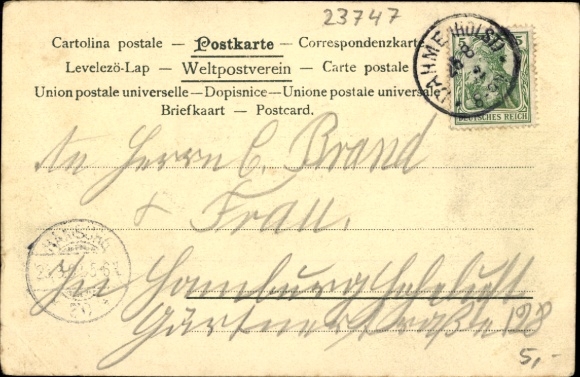 23747
Cartolina postale — Postkarte — Correspondenzkarte
Levelező-Lap — Weltpostverein — Carte postale
Union postale universelle — Dopisnice — Unione postale universale
Briefkaart — Postcard.
DAHME (HOLST)
DEUTSCHES REICH
An Herrn C. Brand
& Frau.
HAMBURG
In Hamburg Hoheluft
Gärtnerstraße 128
5,-